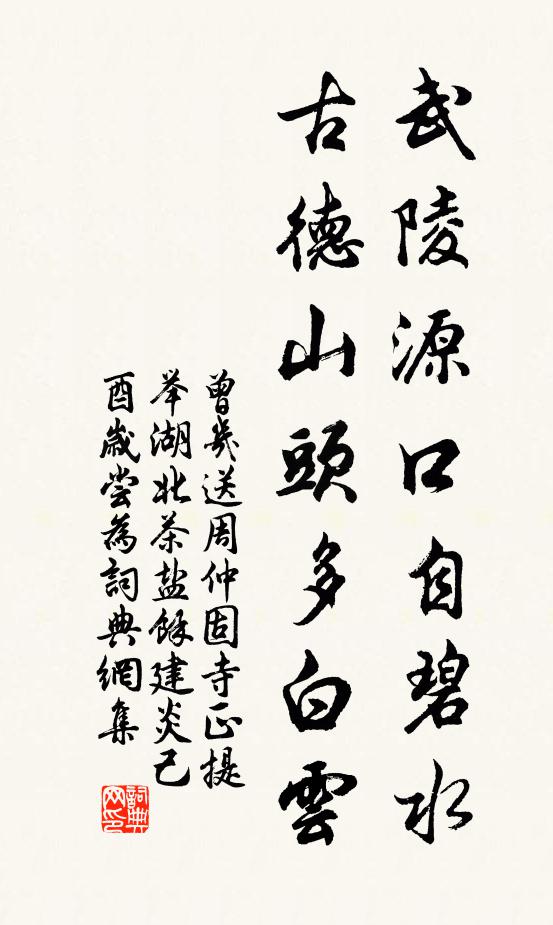 武陵源口自碧水
古德山頭多白雲
曾幾送周仲固寺正提
举湖北茶盐餘建炎己
酉歲尝為詞典網集
詞典网印